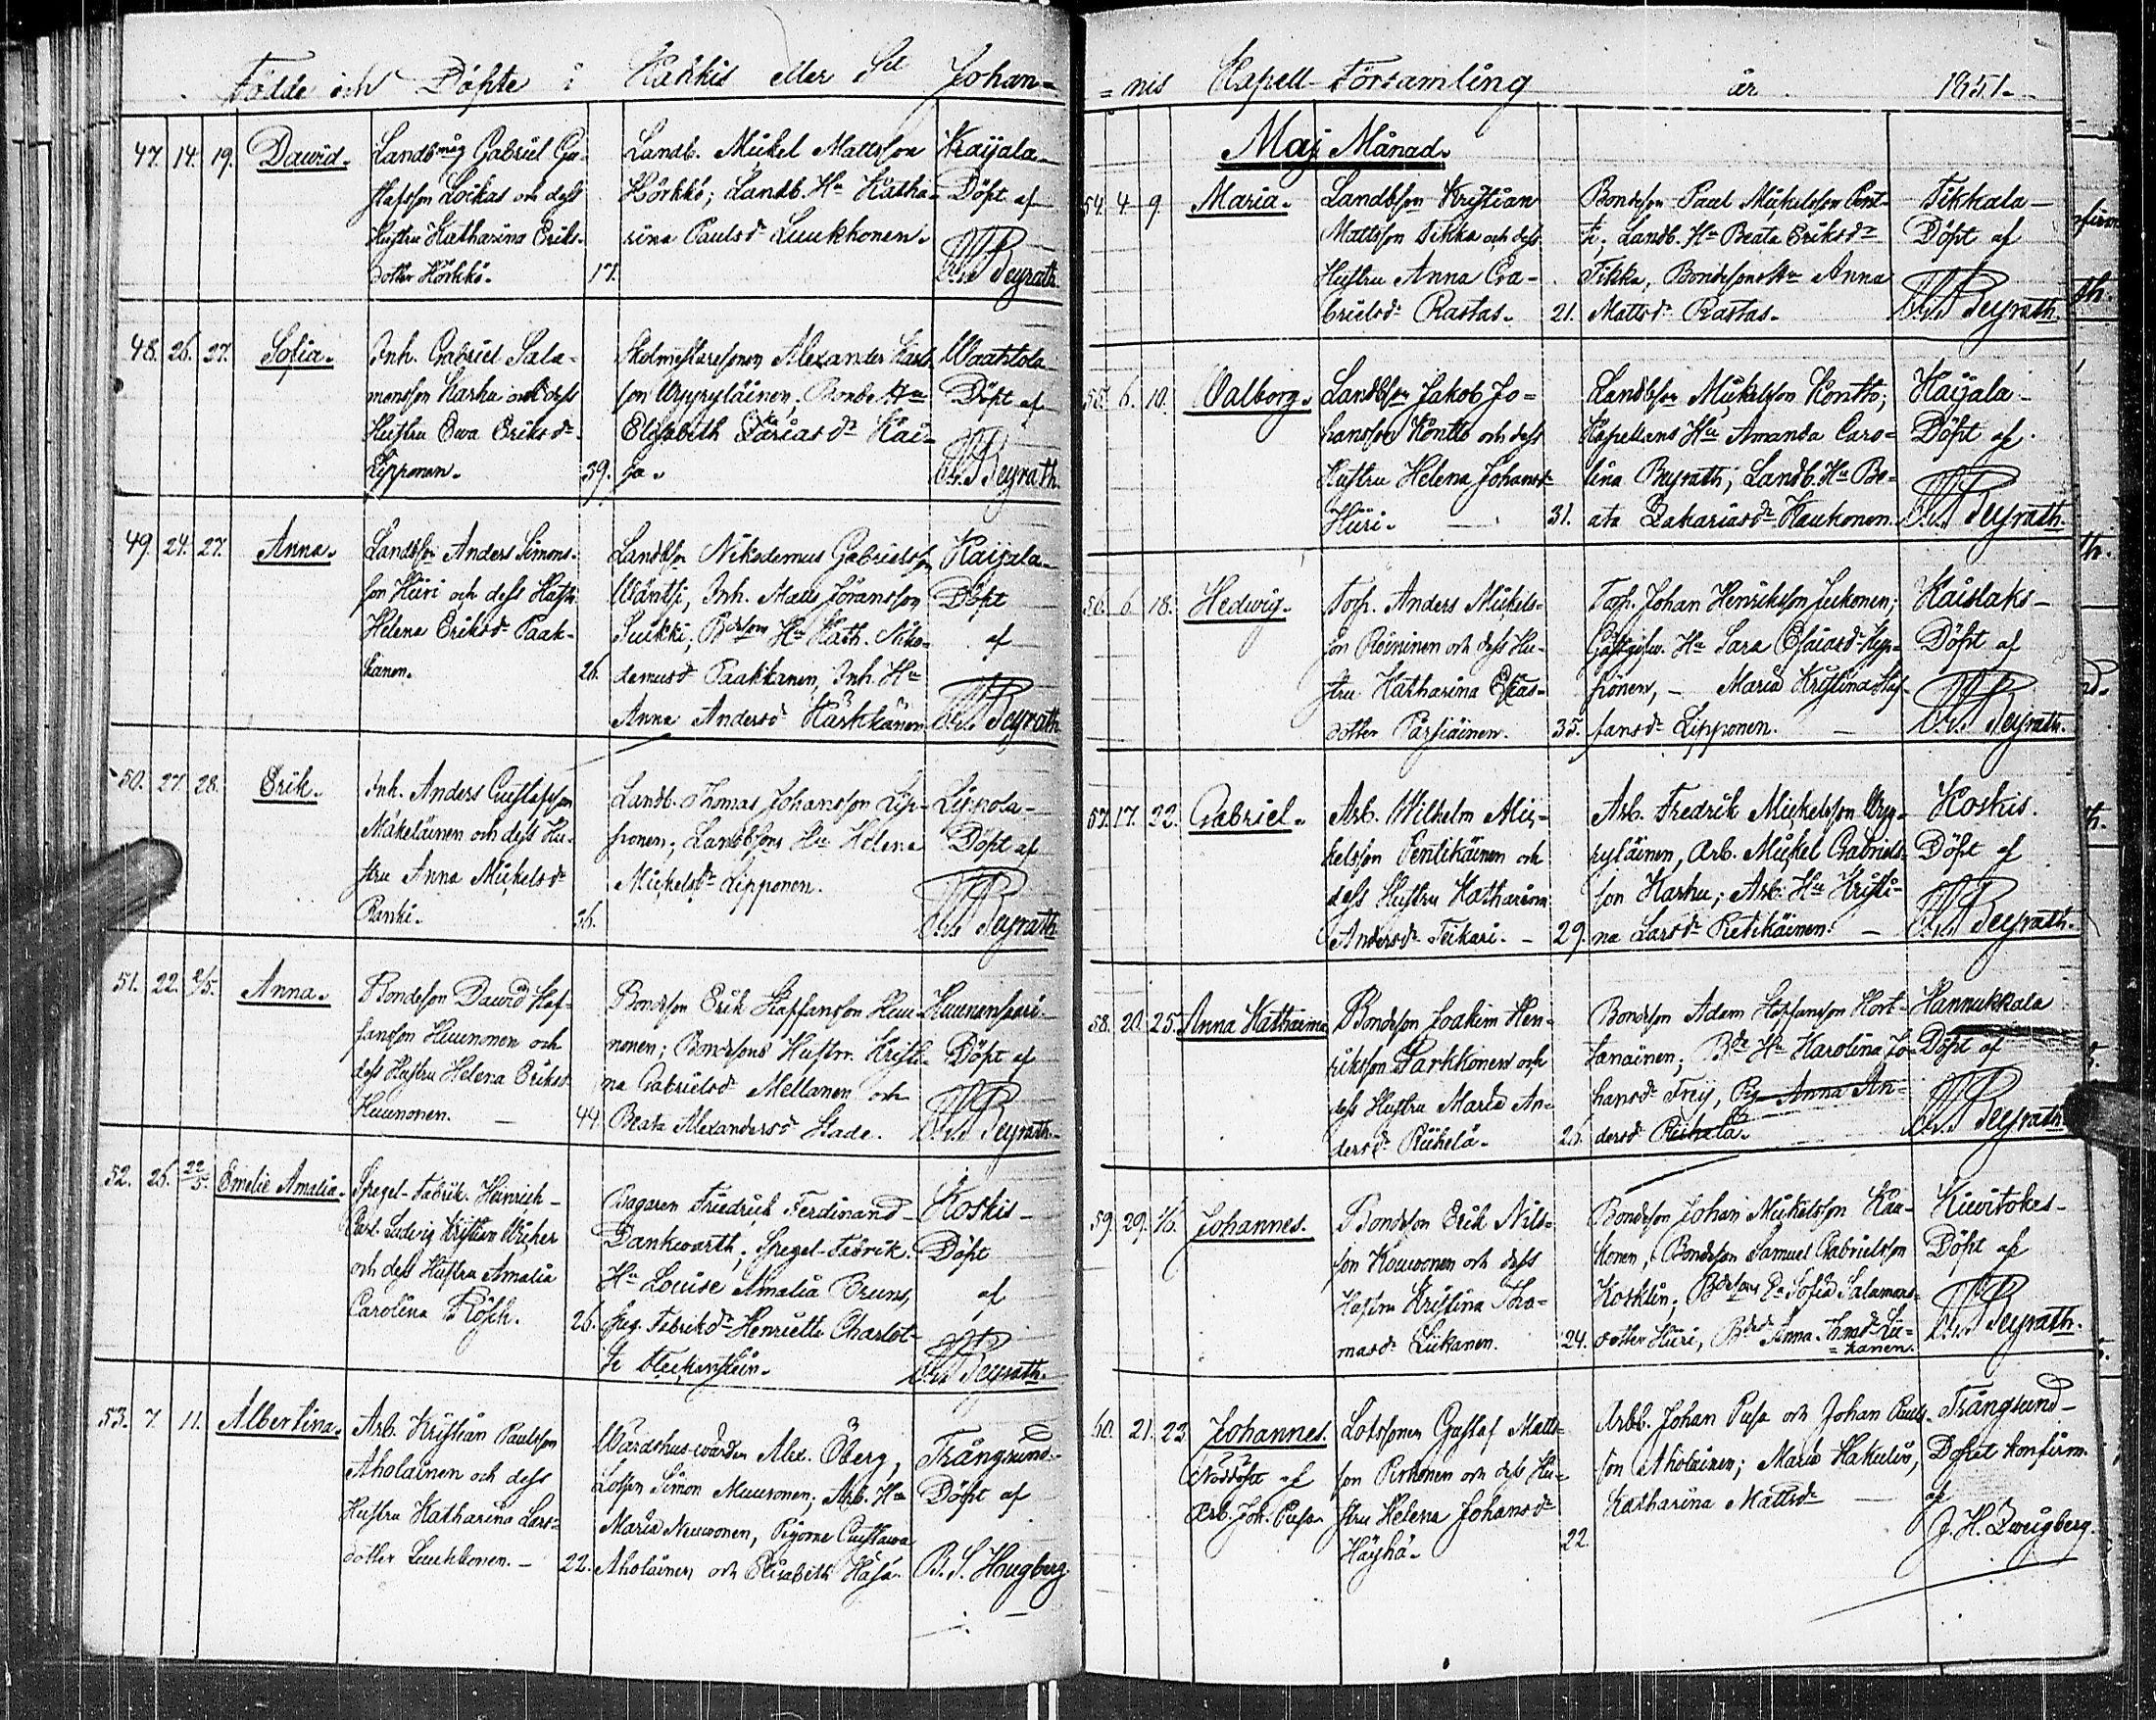 Födde och Döpte i Kakkis eller S:t Johan=
47. 14. 19. David.
Landbmåg Gabriel Gu-
stafsson Lockas och dess
Hustru Katharina Eriks-
dotter Hörkkö. 17.
Landb. Mickel Mattsson
Hörkkö; Landb. Hu Katha-
rina Paulsdr Luukkonen.
Kaijala
Döpt af
Beyrath.
48. 26. 27. Sofia.
Inh. Gabriel Sala-
monsson Karhu och dess
Hustru Ewa Eriksdr
Lipponen. 39.
Skolmästaresonen Alexander Karls-
son Wyyryläinen, Bonde Hu
Elisabeth Kai-
ja.
Waahtola
Döpt af
Beyrath.
49. 24. 27. Anna.
Landbson Anders Simons-
son Hüri och dess Hustru
Helena Eriksdr Paak-
kanen. 26.
Landbson Nikodemus Gabrielsson
Wäntsi, Inh. Matts Göransson
Suikki; Bdesons Hu Kath. Niko-
demusdr Paakkanen, Inh. Hu
Anna Andersdr Häshkänen
Kaijala
Döpt
af
Beyrath
50. 27. 28. Erik.
Inh. Anders Gustafsson
Mäkeläinen och dess Hu-
stru Anna Mickelsdr
Ranki. 36.
Landb. Thomas Johansson Lip-
ponen; Landbsons Hu Helena
Mickelsdr Lipponen.
Lippola
Döpt af
Beyrath
51. 22. 2/5. Anna.
Bondeson David Staf-
fansson Huunonen och
dess Hustru Helena Eriksdr
Huunonen. 44.
Bondeson Erik Staffansson Huu-
nonen; Bondesons Hustru Kristi-
na Gabrielsdr Mellanen och
Beata Alexandersdr Stade.
Huunonsaari
Döpt af
Beyrath.
52. 25. 22/5. Emelie Amalia.
Spegel-Fabrik. Heinrich
Carl Ludvig Kristian Wicher
och dess Hustru Amalia
Carolina Rösch. 26.
Bagaren Friedrich Ferdinand
Dankwarth; Spegel-Fabrik.
Hu Louise Amalia Bruns,
Speg. Fabrikdr Henriette Charlot-
te Heckenstein.
Koskis
Döpt
af
Beyrath.
53. 7. 11. Albertina.
Arb. Kristian Paulsson
Aholainen och dess
Hustru Katharina Lars-
dotter Luukkonen. 22.
Wärdshus-wärden Alex. Öberg,
Lotsen Simon Muuronen; Arb. Hu
Maria Neuvonen, Pigorne Gustawa
Aholainen och Elisabeth Häsä.
Trångsund
Döpt af
B. S. Hougberg.
= nis Kapell-Församling år 1851.
Maj Månad.
54. 4. 9. Maria.
Landbson Kristian
Mattsson Tikka och dess
Hustru Anna Ga-
brielsdr Rastas. 21.
Bondeson Paul Mickelsson Pent-
ti; Landb. Hu Beata Eriksdr
Tikka, Bondesons Hu Anna
Mattsdr Rastas.
Tikkala
Döpt af
Beyrath.
55. 6. 10. Walborg.
Landbson Jakob Jo-
hansson Kontto och dess
Hustru Helena Johansdr
Hüri. 31.
Landbson Mickelsson Kontto;
Kapellans Hu Amanda Caro-
lina Beyrath; Landb. Hu Be-
ata Zakariasdr Kaukonen.
Kaijala
Döpt af
Beyrath.
56. 6. 18. Hedwig.
Torp. Anders Mickels-
son Röininen och dess Hu-
stru Katharina Eskas-
dotter Pärsiäinen. 35.
Torp. Johan Henriksson Jukonen;
Gästgifw. Hu Sara Esaiasdr Kep-
ponen, Maria Kristina Staf-
fansdr Lipponen.
Kaislaks
Döpt af
Beyrath.
57. 17. 22. Gabriel.
Arb. Wilhelm Mic-
kelsson Pentikäinen och
dess Hustru Katharina
Andersdr Teikari. 29.
Arb. Fredrik Mickelsson Wyy-
ryläinen, Arb. Mickel Gabriels-
son Karhu; Arb. Hu Kristi-
na Larsdr Pentikäinen.
Koskis.
Döpt af
Beyrath.
58. 20. 25. Anna Katharina
Bondeson Joakim Hen-
riksson Parkkonen och
dess Hustru Maria An-
dersdr Riihelä. 25.
Bondeson Adam Staffansson Hort-
tanainen; Bde Hu Karolina Jo-
hansdr Frey, Pig. Anna An-
dersdr Riihelä.
Hannukkala
Döpt af
Beyrath.
59. 29. 1/6. Johannes.
Bondeson Erik Nils-
son Kouvonen och dess
Hustru Kristina Tho-
masdr Liikanen. 24.
Bondeson Johan Mickelsson Kaa-
konen, Bondeson Samuel Gabrielsson
Kosklin; Bdesons Dr Sofia Salamons-
dotter Hüri, Bdedr Anna Thomasdr Lii-
=kanen.
Kiwitokes
Döpt af
Beyrath.
60. 21. 23. Johannes.
Nöddöpt af
Arb. Joh. Pusa
Lotssonen Gustaf Matts-
son Pirhonen och dess Hu-
stru Helena Johansdr
Häyhä. 22.
Arbb. Johan Pusa och Johan Pauls-
son Aholainen; Maria Hakulin,
Katharina Mattsdr
Trångsund
Dopet konfirm.
af
J. H. Zweigberg.